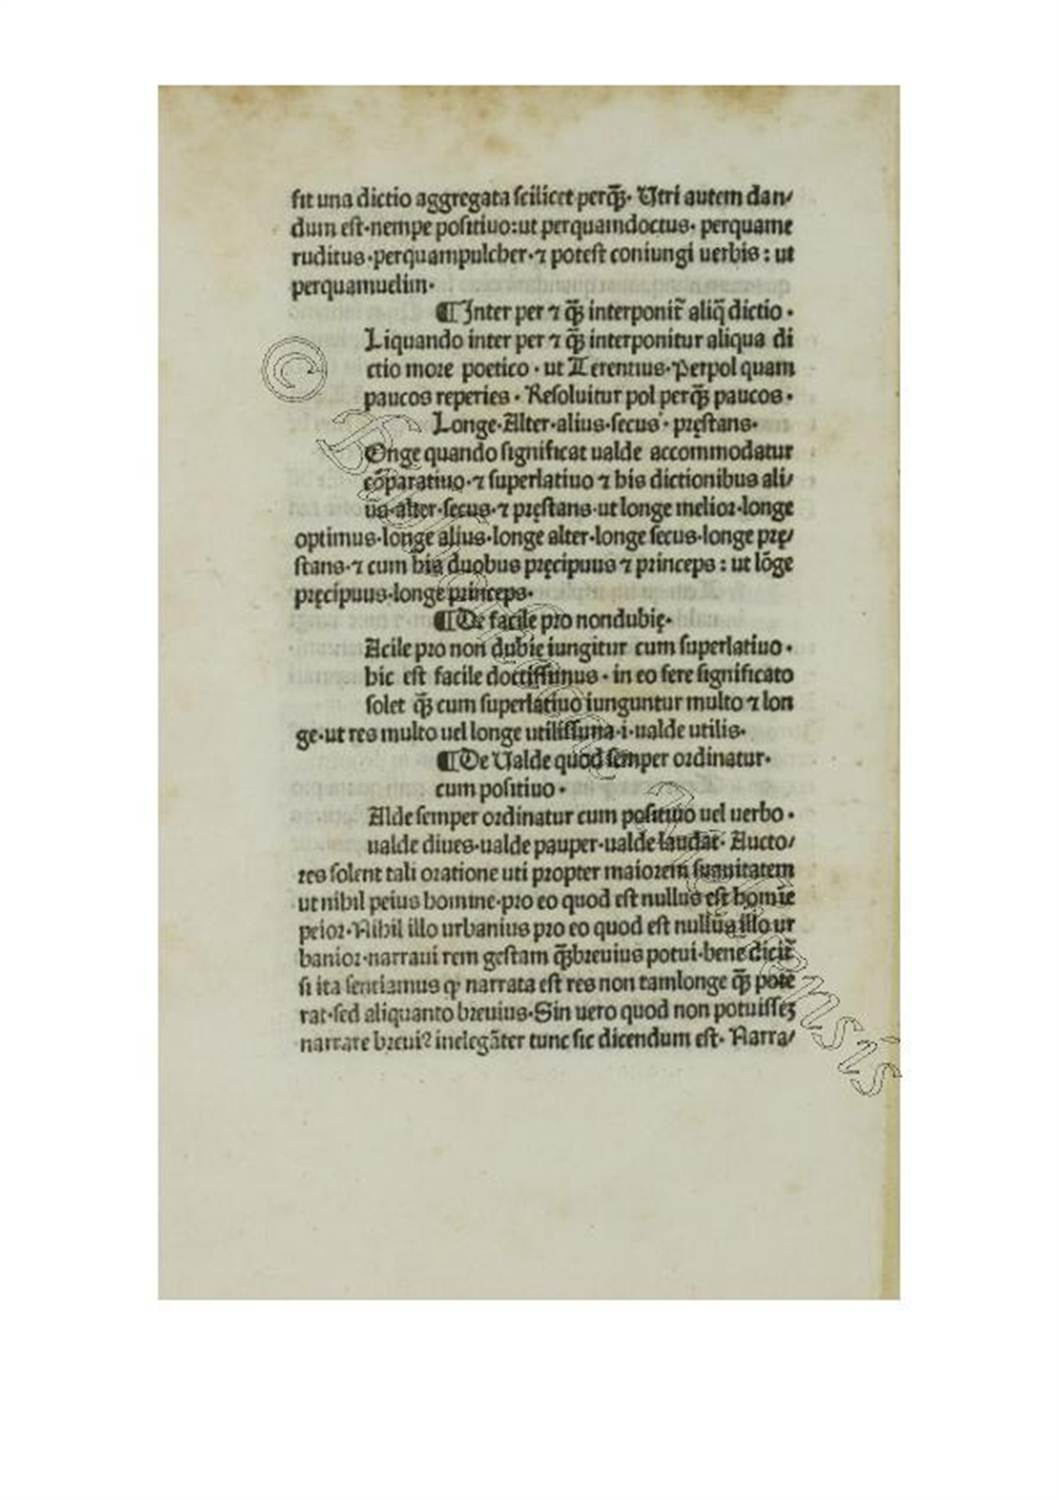 fit una dictio aggregata scilicet perq̃ꝫ. Utri autem dan/
dum est.nempe positiuo:ut perquamdoctus. perquame
ruditus.perquampulcher.⁊ potest coniungi uerbis: ut
perquamuelim.
¶Inter per ⁊ q̃ꝫ interponit᷑ aliq̃ dictio.
Liquando inter per ⁊ q̃ꝫ interponitur aliqua di
ctio more poetico. ut Terentius. Perpol quam
paucos reperies. Resoluitur pol perq̃ꝫ paucos.
Longe.Alter.alius.secus. pręstans.
Onge quando significat ualde accommodatur
cõparatiuo.⁊ superlatiuo ⁊ his dictionibus ali/
us.alter.secus.⁊ pręstans.ut longe melior.longe
optimus.longe alius.longe alter.longe secus.longe prę/
stans.⁊ cum his duobus pręcipuus ⁊ princeps: ut lõge
pręcipuus.longe princeps.
¶De facile pro nondubię.
Acile pro non dubie iungitur cum superlatiuo.
hic est facile doctissimus. in eo fere significato
solet q̃ꝫ cum superlatiuo iunguntur multo ⁊ lon
ge.ut res multo uel longe utilissima.i.ualde utilis.
¶De Ualde quod semper ordinatur.
cum positiuo.
Alde semper ordinatur cum positiuo uel uerbo.
ualde diues.ualde pauper.ualde laudat. Aucto/
res solent tali oratione uti propter maiorem suauitatem
ut nihil peius homine.pro eo quod est nullus est homĩe
peior.Nihil illo urbanius pro eo quod est nullus illo ur
banior.narraui rem gestam q̃ꝫbreuius potui.bene dicit᷑
si ita sentiamus ꝙ narrata est res non tamlonge q̃ꝫ pote
rat.sed aliquanto breuius.Sin uero quod non potuisseꝫ
narrare breui? inelegãter tunc sic dicendum est. Narra/
© Bibliotheca